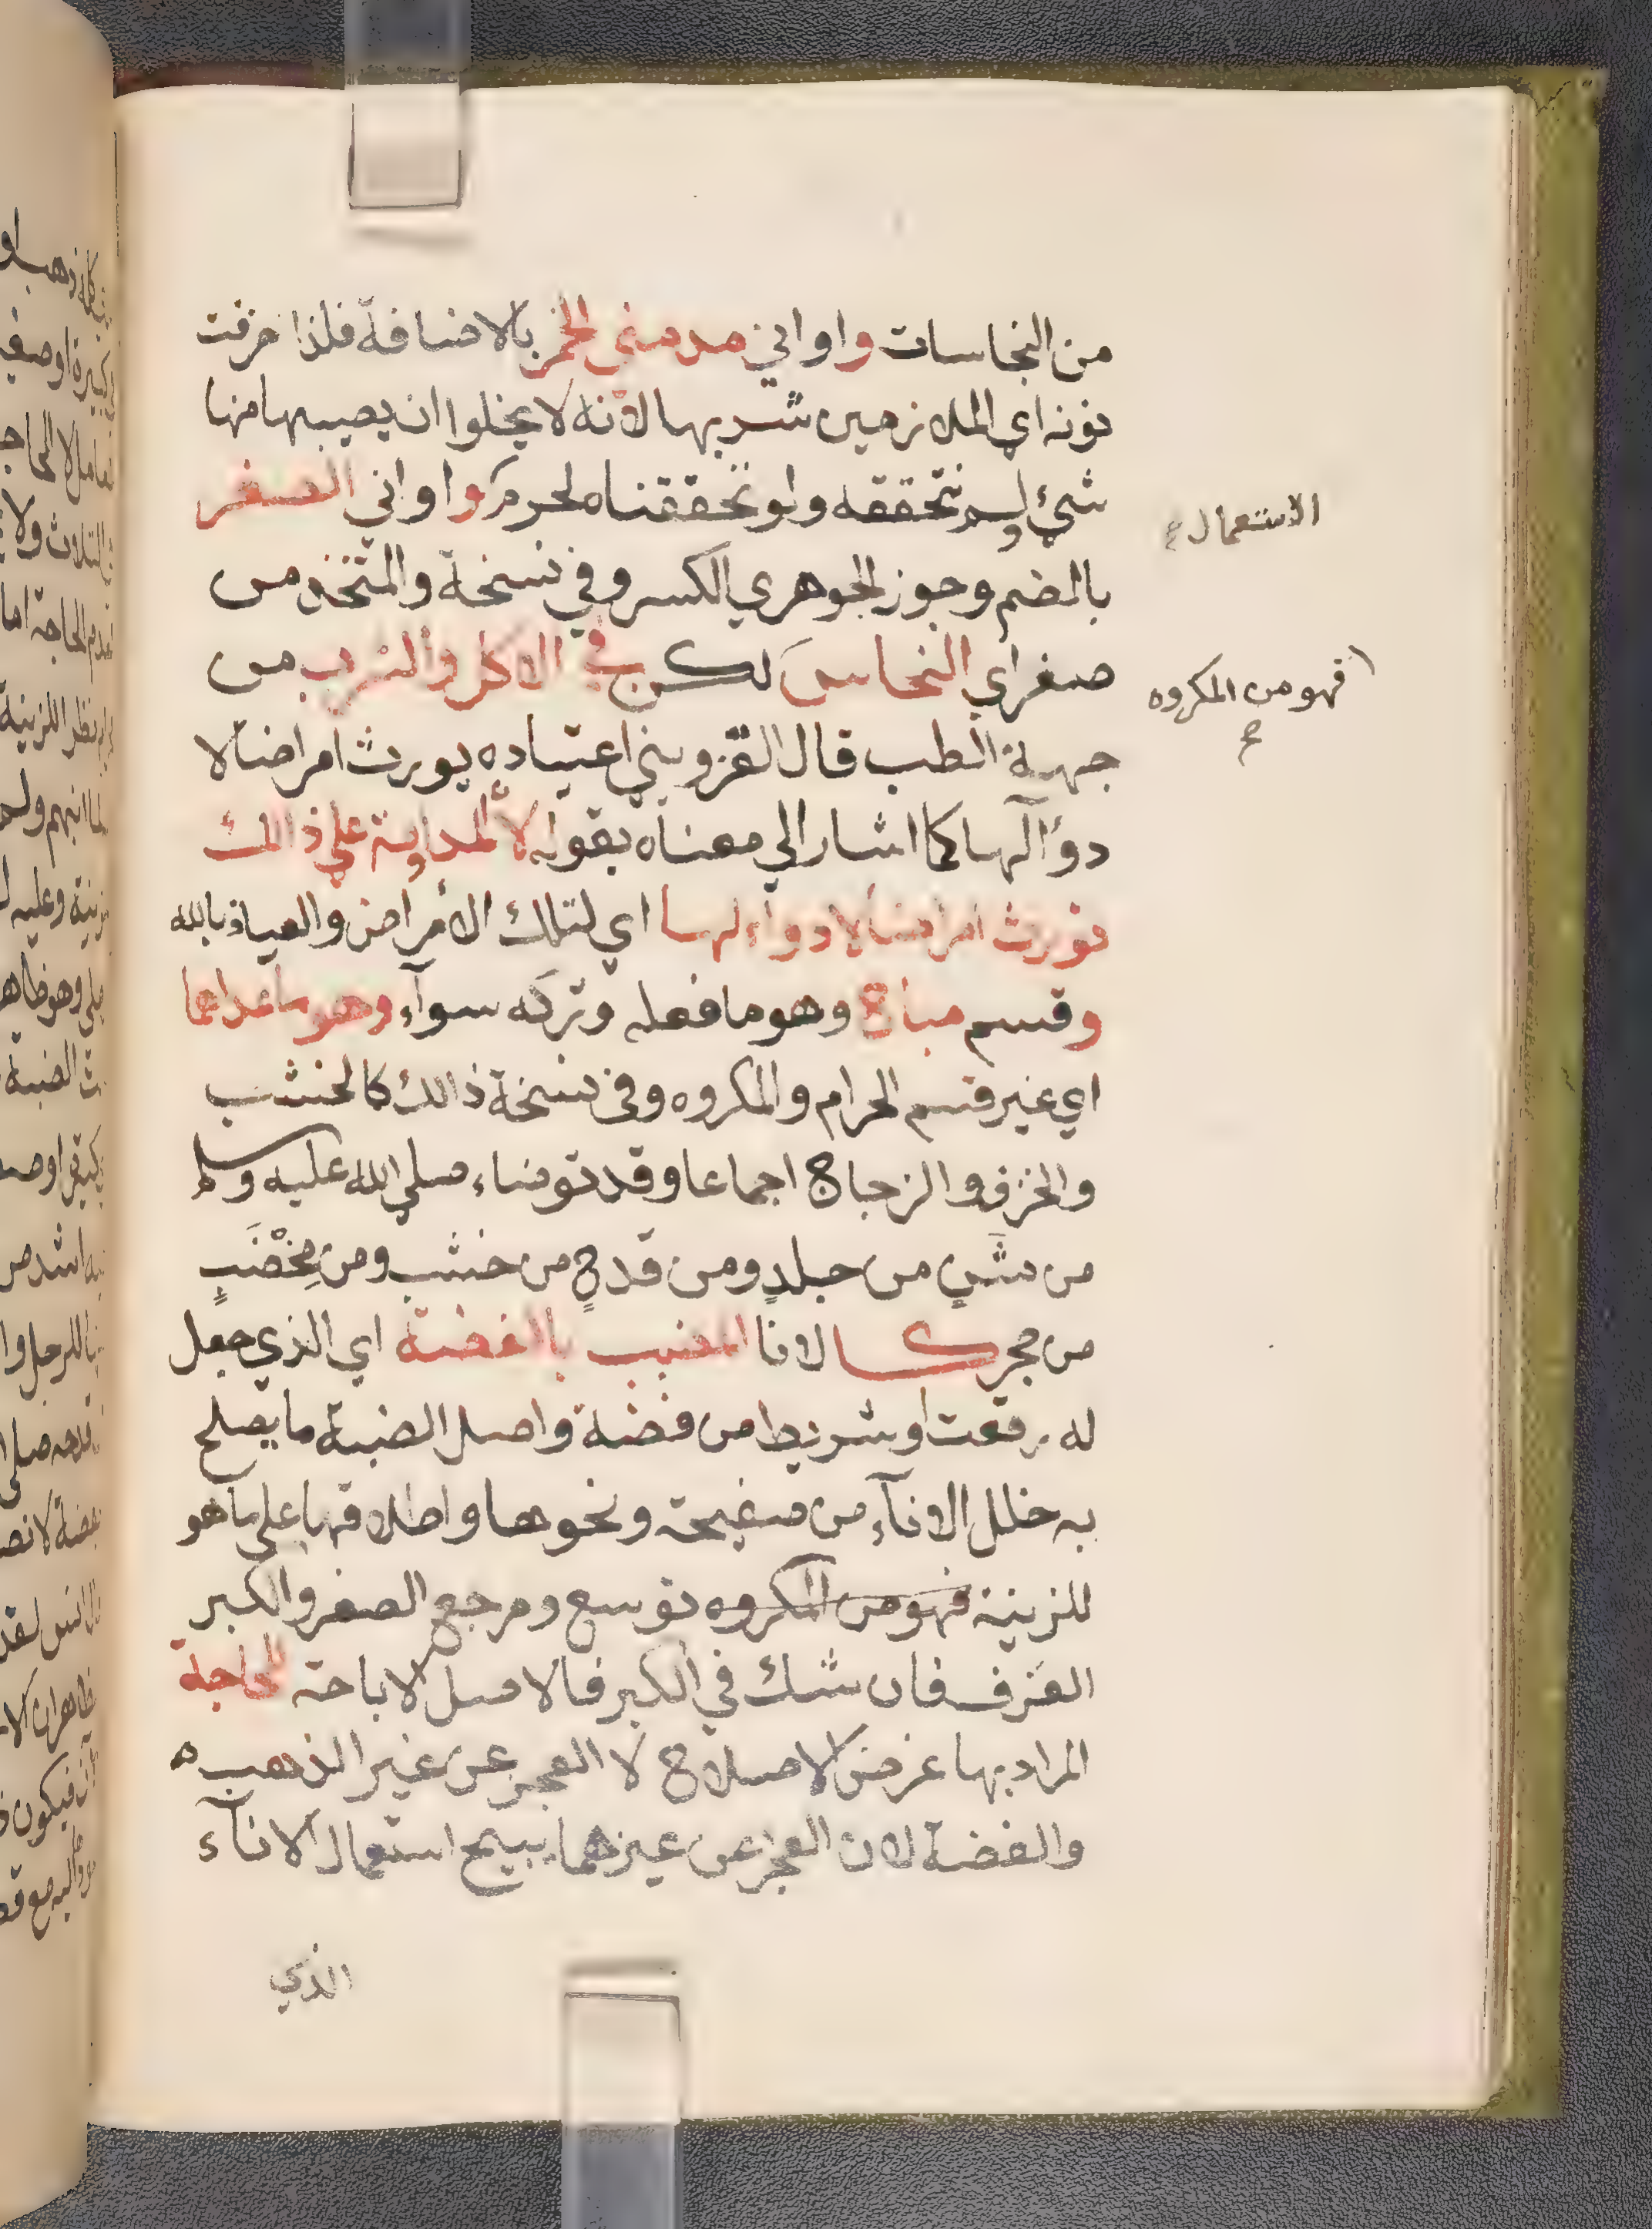 من النجاسات واواني مدمني الخمر بالاضافة فلذا حذفت
نونه اي الملازمين شربها لانه لا يخلوا ان يصيبها منها
شيئ ولم نتحققه ولو تحققناه لحرم واواني الصفر
بالضم وجوز الجوهري الكسر وفي نسخة والمتخذ من
صفر اي النحاس لكن في الاكل والشرب من
جهة الطب قال القزويني اعتياده يورث امراضا لا
دوآ لها كما اشار الي معناه بقوله لأن المداومة علي ذالك
تورث امراضا لا دوآء لها اي لتلك الأمراض والعياذ بالله
وقسم مباح وهو ما فعله وتركه سوآء وهو ما عداهما
اي غير قسم الحرام والمكروه وفي نسخة ذالك كالخشب
والخزف والزجاج اجماعا وقد توضاء صلي الله عليه وسلم
من شنٍ من جلدٍ ومن قدحٍ من خشب ومن مِخْضَبٍ
من حجر كالانا المضبب بالفضة اي الذي جعل
له رقعت او شريط من فضة واصل الضبة ما يصلح
به خلل الانآء من صفيحة ونحوها واطلاقها علي ما هو
للزينة فهو من المكروه توسع ومرجع الصغر والكبر
العرف فان شك في الكبر فالاصل الاباحة لحاجة
المراد بها غرض الاصلاح لا العجز عن غير الذهب
والفضة لان العجز عن غيرهما يبيح استعمال الانآء
الذي
الاستعمال
فهو من المكروه
ح